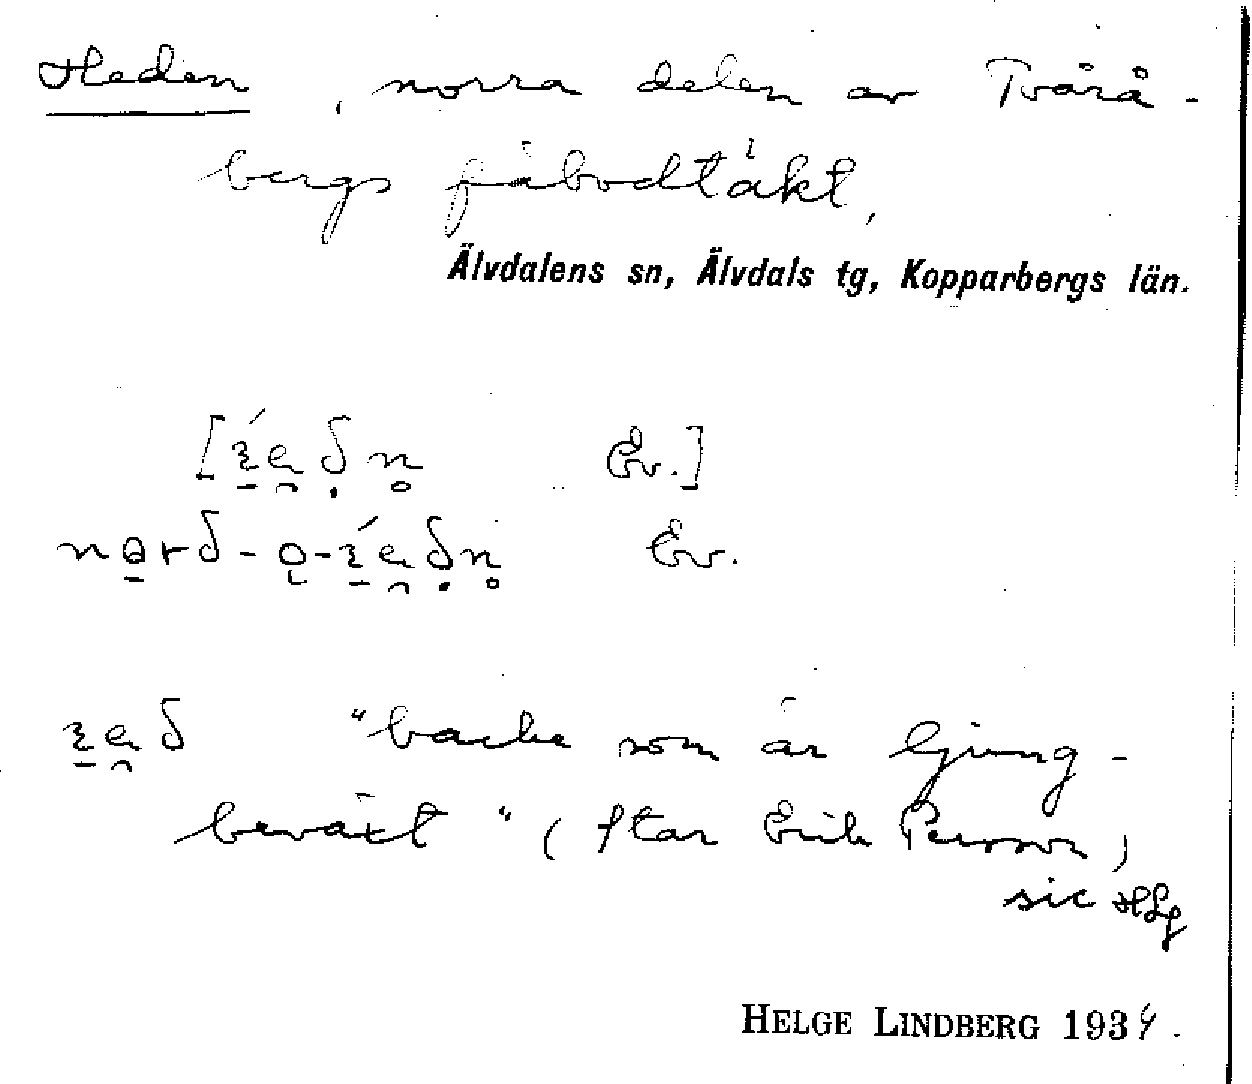 Heden, norra delen av Tvärå-
bergs fäbodtäkt,
Älvdalens sn, Älvdals tg, Kopparbergs län.
Ev.]
Ev.
"backe som är ljung-
beväxt" (ftar Erik Persson)
sic HLg
HELGE LINDBERG 1934.